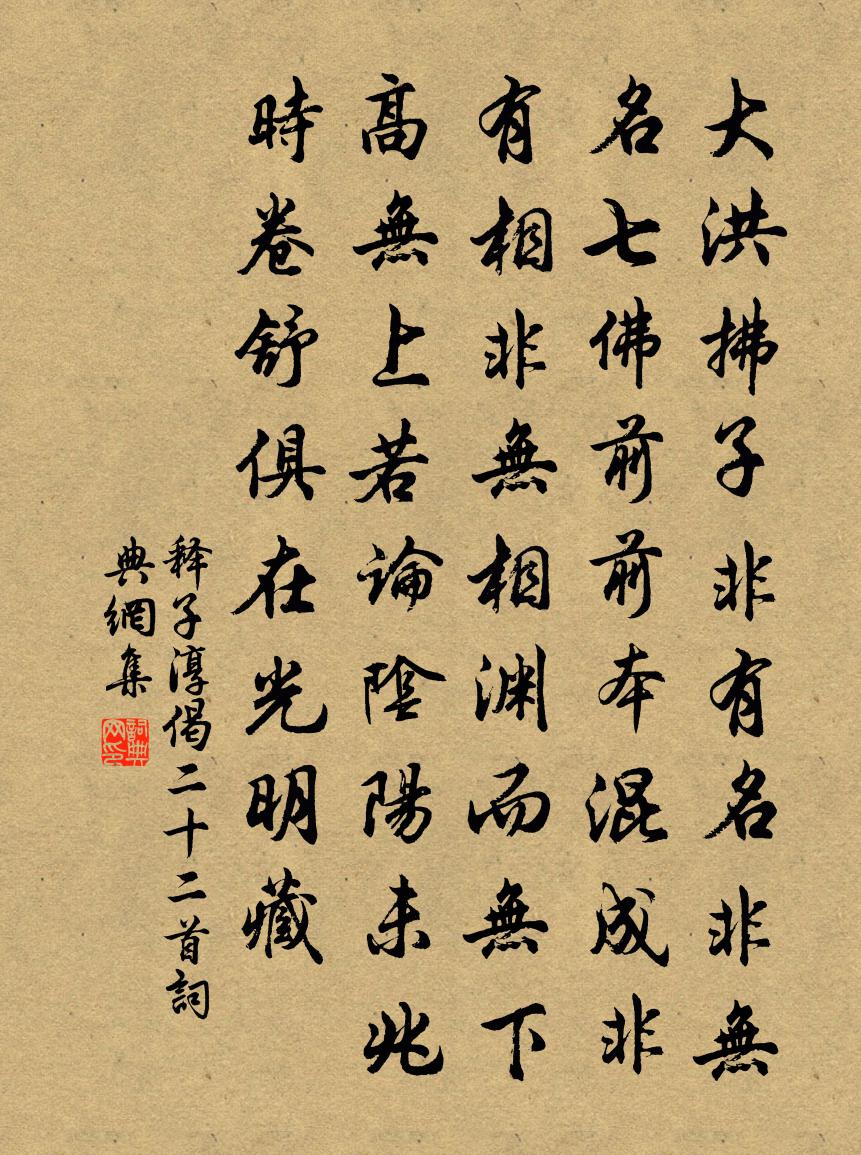 大洪拂子非有名非無
名七佛前前本混成非
有相非無相淵而無下
高無上若論陰陽未兆
時卷舒俱在光明藏
释子淳偈二十二首詞
典網集
詞典網印